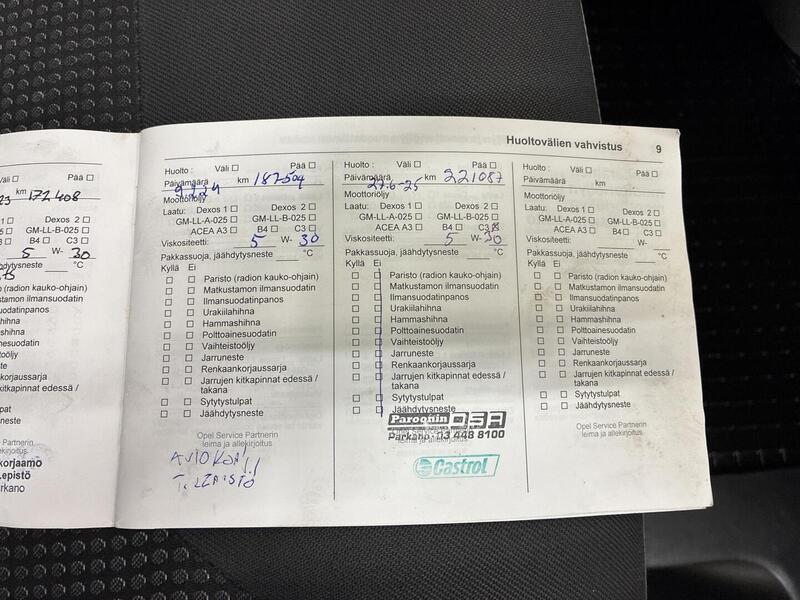 Huoltovälien vahvistus 9
km 172408
1 ☐ Dexos 2 ☐
025 ☐ GM-LL-B-025 ☐
3 ☐ B4 ☐ C3 ☐
5 W- 30
dytysneste ____ °C
(radion kauko-ohjain)
stamon ilmansuodatin
uodatinpanos
hihna
shihna
inesuodatin
oöljy
este
korjaussarja
n kitkapinnat edessä /
pat
neste
Partnerin
kirjoitus
korjaamo
Lepistö
rkano
Huolto : Väli ☐ Pää ☐
Päivämäärä 9.7.24 km 187504
Moottoriöljy
Laatu: Dexos 1 ☐ Dexos 2 ☐
GM-LL-A-025 ☐ GM-LL-B-025 ☐
ACEA A3 ☐ B4 ☐ C3 ☐
Viskositeetti: 5 W- 30
Pakkassuoja, jäähdytysneste ____ °C
Kyllä Ei
☐ ☐ Paristo (radion kauko-ohjain)
☐ ☐ Matkustamon ilmansuodatin
☐ ☐ Ilmansuodatinpanos
☐ ☐ Urakiilahihna
☐ ☐ Hammashihna
☐ ☐ Polttoainesuodatin
☐ ☐ Vaihteistoöljy
☐ ☐ Jarruneste
☐ ☐ Renkaankorjaussarja
☐ ☐ Jarrujen kitkapinnat edessä /
takana
☐ ☐ Sytytystulpat
☐ ☐ Jäähdytysneste
Opel Service Partnerin
leima ja allekirjoitus
Huolto : Väli ☐ Pää ☐
Päivämäärä 27.6-25 km 221087
Moottoriöljy
Laatu: Dexos 1 ☐ Dexos 2 ☐
GM-LL-A-025 ☐ GM-LL-B-025 ☐
ACEA A3 ☐ B4 ☐ C3 ☒
Viskositeetti: 5 W- 30
Pakkassuoja, jäähdytysneste ____ °C
Kyllä Ei
☐ ☐ Paristo (radion kauko-ohjain)
☐ ☐ Matkustamon ilmansuodatin
☐ ☐ Ilmansuodatinpanos
☐ ☐ Urakiilahihna
☐ ☐ Hammashihna
☐ ☐ Polttoainesuodatin
☐ ☐ Vaihteistoöljy
☐ ☐ Jarruneste
☐ ☐ Renkaankorjaussarja
☐ ☐ Jarrujen kitkapinnat edessä /
takana
☐ ☐ Sytytystulpat
☐ ☐ Jäähdytysneste
Paroonin OSA
Parkano 03 448 8100
leima ja allekirjoitus
Castrol
Huolto : Väli ☐ Pää ☐
Päivämäärä km
Moottoriöljy
Laatu: Dexos 1 ☐ Dexos 2 ☐
GM-LL-A-025 ☐ GM-LL-B-025 ☐
ACEA A3 ☐ B4 ☐ C3 ☐
Viskositeetti: ____ W- ____
Pakkassuoja, jäähdytysneste ____ °C
Kyllä Ei
☐ ☐ Paristo (radion kauko-ohjain)
☐ ☐ Matkustamon ilmansuodatin
☐ ☐ Ilmansuodatinpanos
☐ ☐ Urakiilahihna
☐ ☐ Hammashihna
☐ ☐ Polttoainesuodatin
☐ ☐ Vaihteistoöljy
☐ ☐ Jarruneste
☐ ☐ Renkaankorjaussarja
☐ ☐ Jarrujen kitkapinnat edessä /
takana
☐ ☐ Sytytystulpat
☐ ☐ Jäähdytysneste
Opel Service Partnerin
leima ja allekirjoitus